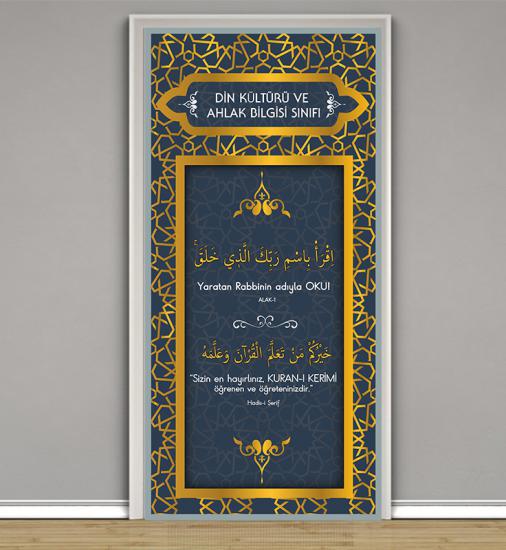 DİN KÜLTÜRÜ VE
AHLAK BİLGİSİ SINIFI
اِقْرَأْ بِاسْمِ رَبِّكَ الَّذ۪ي خَلَقَۚ
Yaratan Rabbinin adıyla OKU!
ALAK-1
خَيْرُكُمْ مَنْ تَعَلَّمَ الْقُرْآنَ وَعَلَّمَهُ
“Sizin en hayırlınız, KURAN-I KERİMİ
öğrenen ve öğreteninizdir.”
Hadis-i Şerif